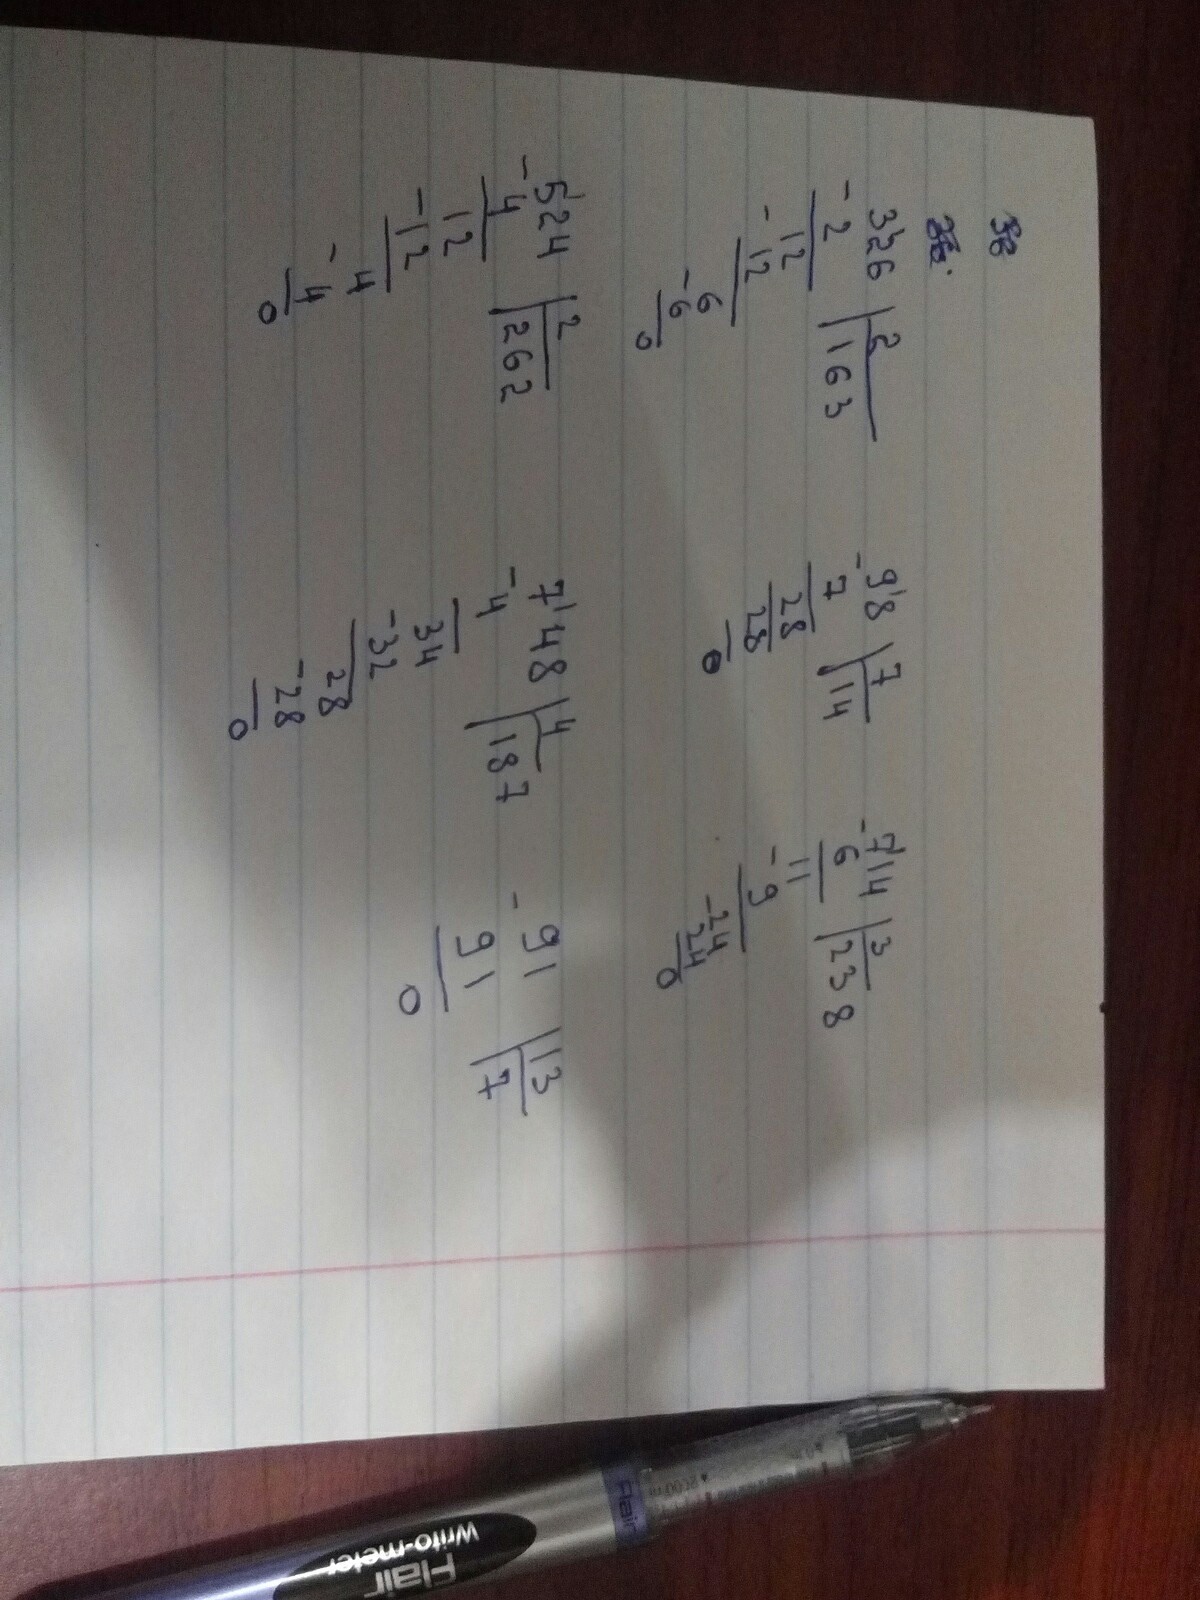 38
326 2 98 7 714 3
- 2 163 - 7 14 - 6 238
12 28 11
- 12 28 - 9
6 0 - 24
- 6 24
0 0
524 2 748 4 - 91 13
- 4 262 - 4 187 91 7
12 34 0
- 12 - 32
4 28
- 4 - 28
0 0
Flair
Flair
Writo-meter